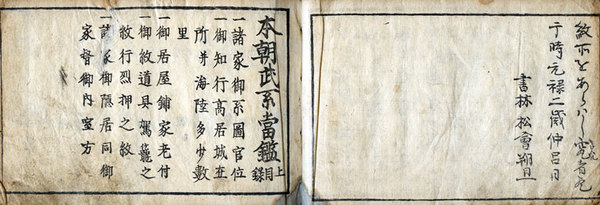 紋所をあらハし
于時元禄二歳仲呂日
書林 松會朔旦
本朝武系當鑑 上目録
一諸家御系圖官位
一御知行高居城在
所并海陸多少數
里
一御居屋鋪家老付
一御紋道具駕籠之
紋行烈押之紋
一諸家御隠居同御
家督御内室方